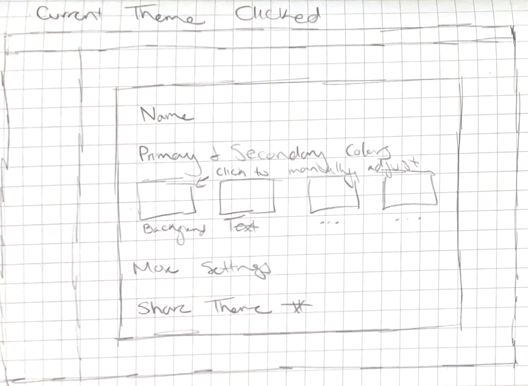 Current Theme Clicked
Name
Primary & Secondary Colors
click to manually adjust
Background Text ... ...
More Settings
Share Theme #